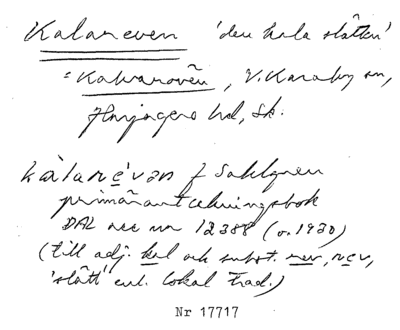 Kalareven 'den kala slätten'
= Kalvarovën, V. Karaby sn,
Harjagers hd, Sk.
kàlarévən f Sahlgren
primäranteckningsbok
DAL acc nr 12388 (o. 1930)
(till adj. kal och subst. rev, rev,
'slätt' enl. lokal trad.)
Nr 17717